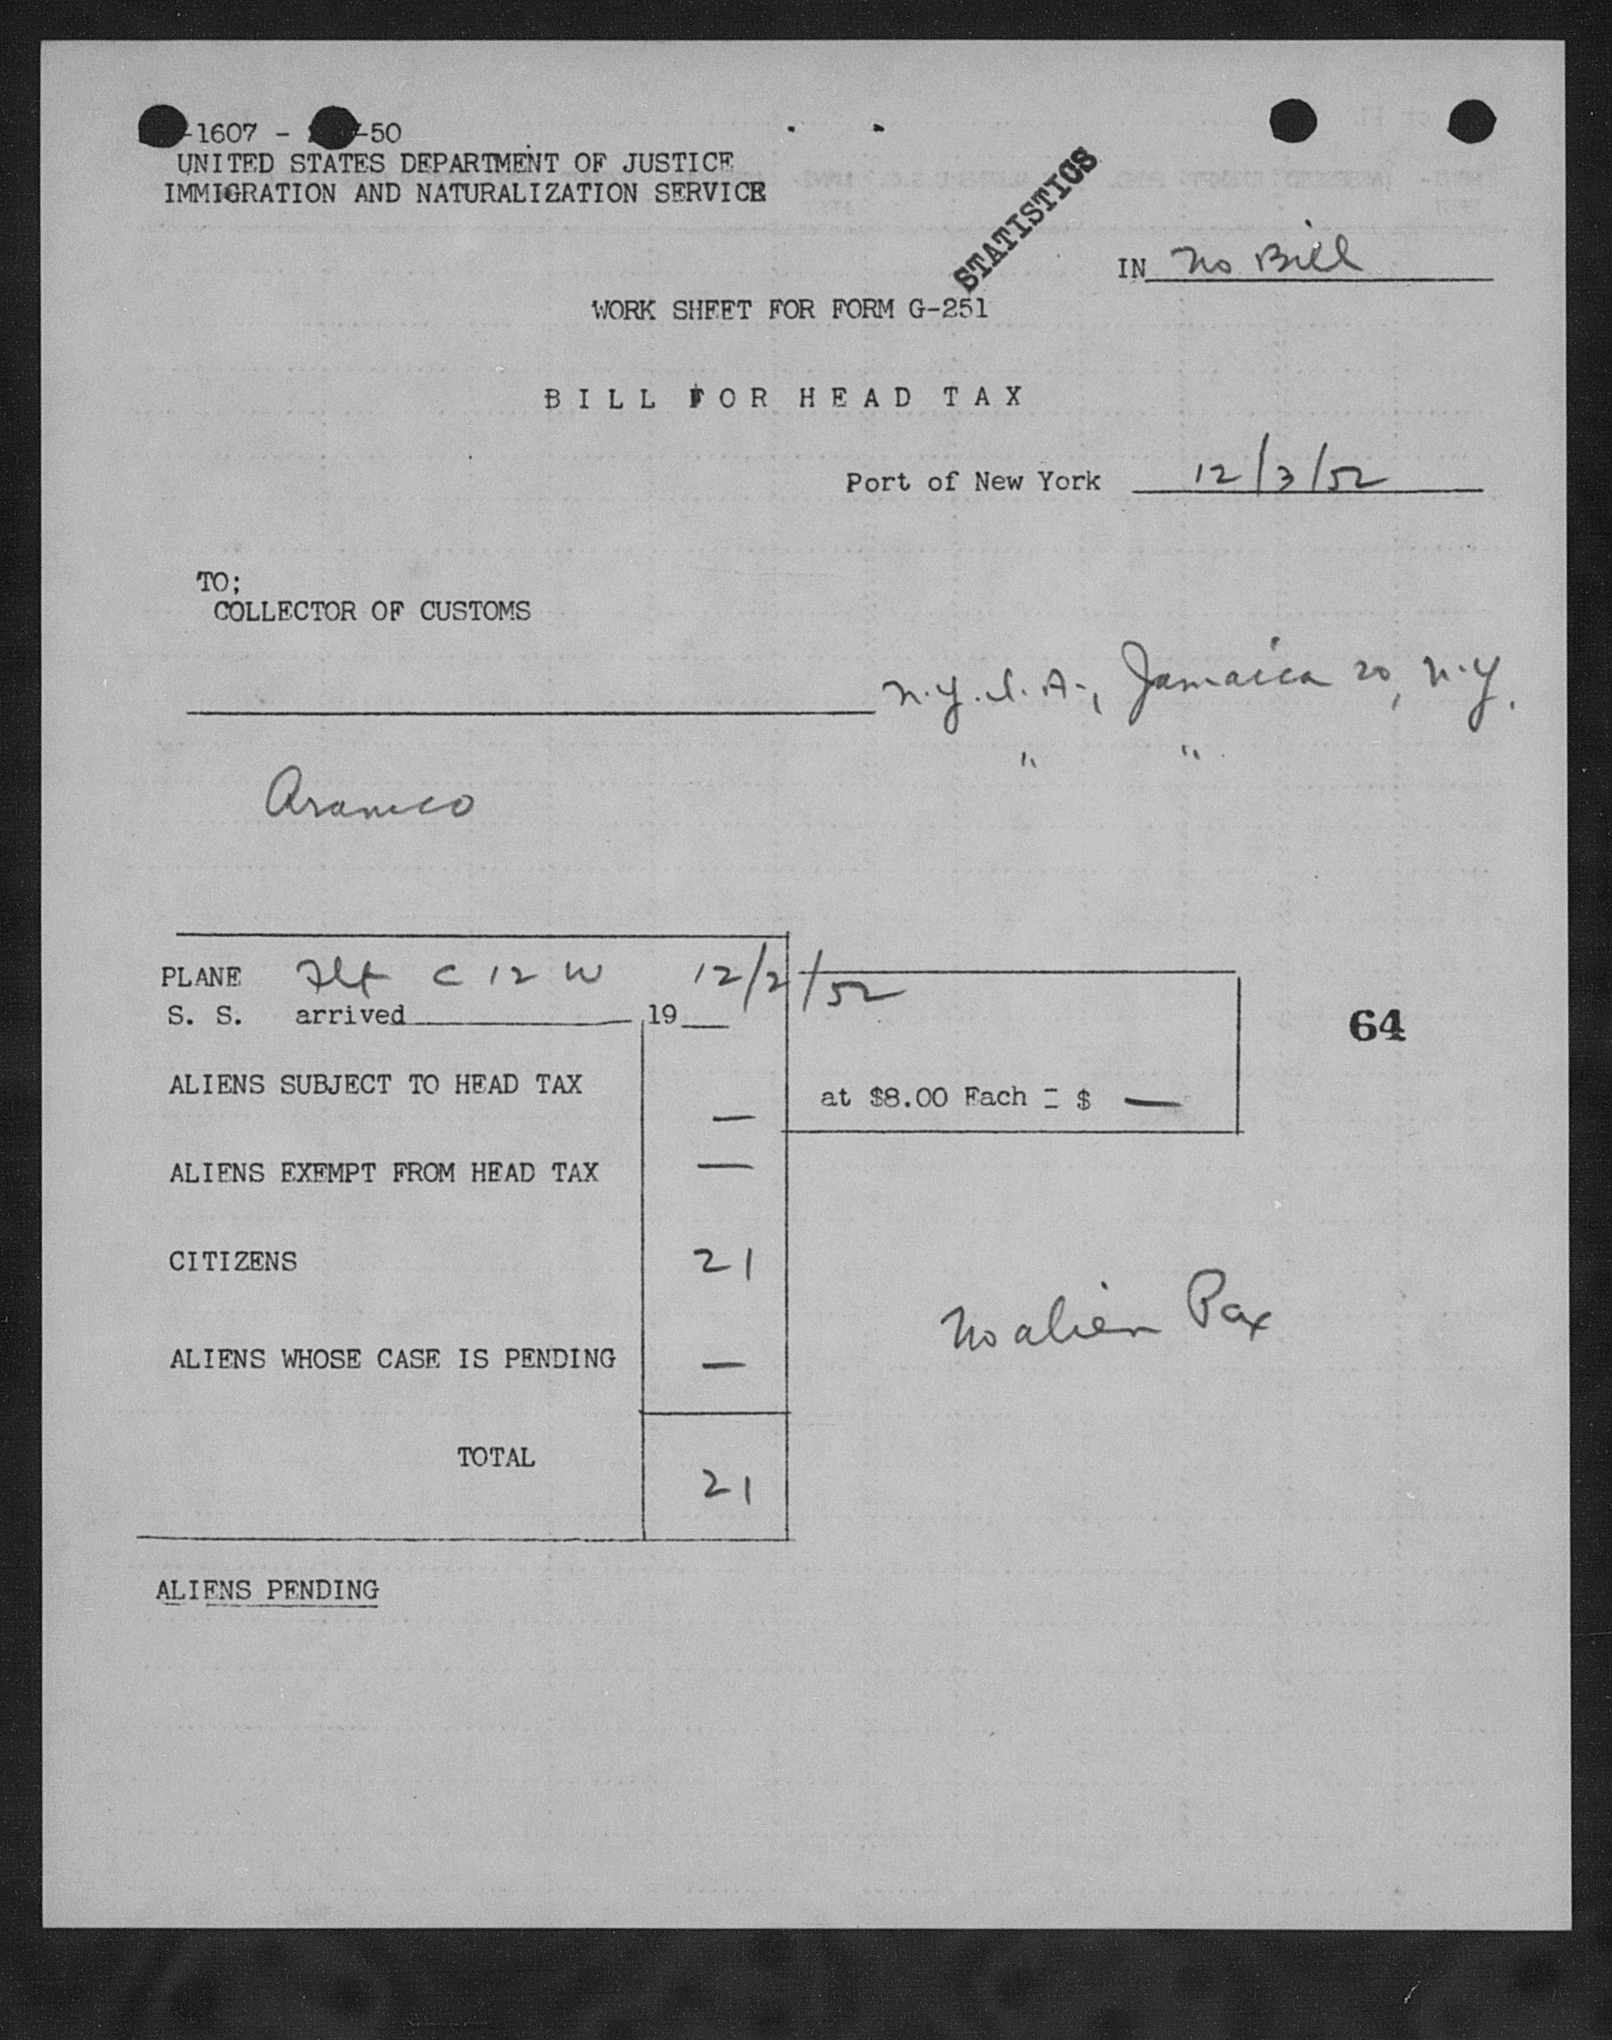 -1607 - -50
UNITED STATES DEPARTMENT OF JUSTICE
IMMIGRATION AND NATURALIZATION SERVICE
STATISTICS
IN No Bill
WORK SHEET FOR FORM G-251
BILL FOR HEAD TAX
Port of New York 12/3/52
TO;
COLLECTOR OF CUSTOMS
N.Y.I.A., Jamaica 20, N.Y.
" "
Aramco
PLANE Flt C 12 W 12/2/52
S. S. arrived 19
64
ALIENS SUBJECT TO HEAD TAX — at $8.00 Each = $ —
ALIENS EXEMPT FROM HEAD TAX —
CITIZENS 21
No alien Pax
ALIENS WHOSE CASE IS PENDING —
TOTAL 21
ALIENS PENDING